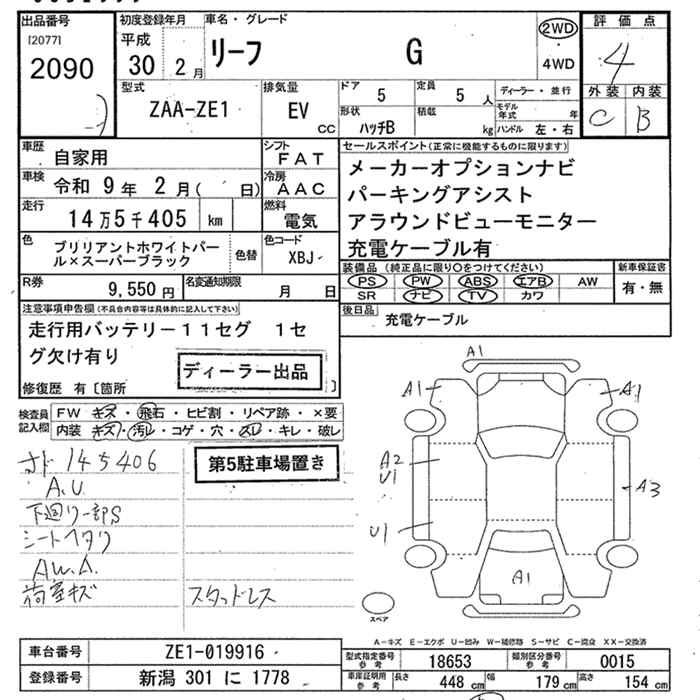 出品番号
[2077]
2090
初度登録年月
平成
30 2月
車名・グレード
リーフ G
2WD
4WD
評価点
4
外装 内装
C B
型式
ZAA-ZE1
排気量
EV
CC
ドア 5
定員 5 人
形状 ハッチB
積載 kg
ディーラー・並行
モデル年式 年
ハンドル 左・右
車歴 自家用
シフト FAT
車検 令和 9年 2月( 日)
冷房 AAC
走行 14万5千405 km
燃料 電気
色 ブリリアントホワイトパー
ル×スーパーブラック
色替
色コード XBJ
R券 9,550円
名変通知期限 月 日
セールスポイント(正常に機能するものに限ります)
メーカーオプションナビ
パーキングアシスト
アラウンドビューモニター
充電ケーブル有
装備品(純正品に限り○をつけてください)
PS PW ABS エアB AW
SR ナビ TV カワ
新車保証書
有・無
後日品 充電ケーブル
注意事項申告欄(不具合内容等は具体的に記入して下さい)
走行用バッテリー11セグ 1セ
グ欠け有り
ディーラー出品
修復歴 有〔箇所
検査員
記入欄
FW キズ・飛石・ヒビ割・リペア跡・×要
内装 キズ・汚レ・コゲ・穴・スレ・キレ・破レ
オド 145406
A.U.
下廻り一部S
シートヘタリ
A.W.A.
荷室キズ
第5駐車場置き
スタッドレス
A1
A1
A1
A2
U1
A3
U1
A1
スペア
A-キズ E-エクボ U-凹み W-補修跡 S-サビ C-腐食 XX-交換済
車台番号 ZE1-019916
登録番号 新潟 301 に 1778
型式指定番号 参考 18653
類別区分番号 参考 0015
車庫証明用 参考
長さ 448 cm
幅 179 cm
高さ 154 cm